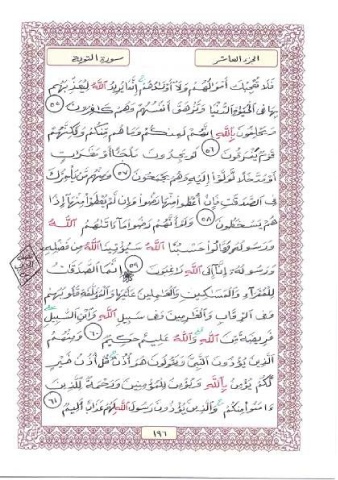 الجزء العاشر
سورة التوبة
فَلَا تُعْجِبْكَ أَمْوَالُهُمْ وَلَا أَوْلَادُهُمْ إِنَّمَا يُرِيدُ اللَّهُ لِيُعَذِّبَهُم
بِهَا فِي الْحَيَوٰةِ الدُّنْيَا وَتَزْهَقَ أَنفُسُهُمْ وَهُمْ كَافِرُونَ ٥٥
وَيَحْلِفُونَ بِاللَّهِ إِنَّهُمْ لَمِنكُمْ وَمَا هُم مِّنكُمْ وَلَٰكِنَّهُمْ
قَوْمٌ يَفْرَقُونَ ٥٦ لَوْ يَجِدُونَ مَلْجَئًا أَوْ مَغَارَاتٍ
أَوْ مُدَّخَلًا لَّوَلَّوْا إِلَيْهِ وَهُمْ يَجْمَحُونَ ٥٧ وَمِنْهُم مَّن يَلْمِزُكَ
فِي الصَّدَقَاتِ فَإِنْ أُعْطُوا مِنْهَا رَضُوا وَإِن لَّمْ يُعْطَوْا مِنْهَا إِذَا
هُمْ يَسْخَطُونَ ٥٨ وَلَوْ أَنَّهُمْ رَضُوا مَا ءَاتَاهُمُ اللَّهُ
وَرَسُولُهُ وَقَالُوا حَسْبُنَا اللَّهُ سَيُؤْتِينَا اللَّهُ مِن فَضْلِهِ
وَرَسُولُهُ إِنَّا إِلَى اللَّهِ رَاغِبُونَ ٥٩ إِنَّمَا الصَّدَقَاتُ
لِلْفُقَرَاءِ وَالْمَسَاكِينِ وَالْعَامِلِينَ عَلَيْهَا وَالْمُؤَلَّفَةِ قُلُوبُهُمْ
وَفِي الرِّقَابِ وَالْغَارِمِينَ وَفِي سَبِيلِ اللَّهِ وَابْنِ السَّبِيلِ
فَرِيضَةً مِّنَ اللَّهِ وَاللَّهُ عَلِيمٌ حَكِيمٌ ٦٠ وَمِنْهُمُ
الَّذِينَ يُؤْذُونَ النَّبِيَّ وَيَقُولُونَ هُوَ أُذُنٌ قُلْ أُذُنُ خَيْرٍ
لَّكُمْ يُؤْمِنُ بِاللَّهِ وَيُؤْمِنُ لِلْمُؤْمِنِينَ وَرَحْمَةٌ لِّلَّذِينَ
ءَامَنُوا مِنكُمْ وَالَّذِينَ يُؤْذُونَ رَسُولَ اللَّهِ لَهُمْ عَذَابٌ أَلِيمٌ ٦١
١٩٦